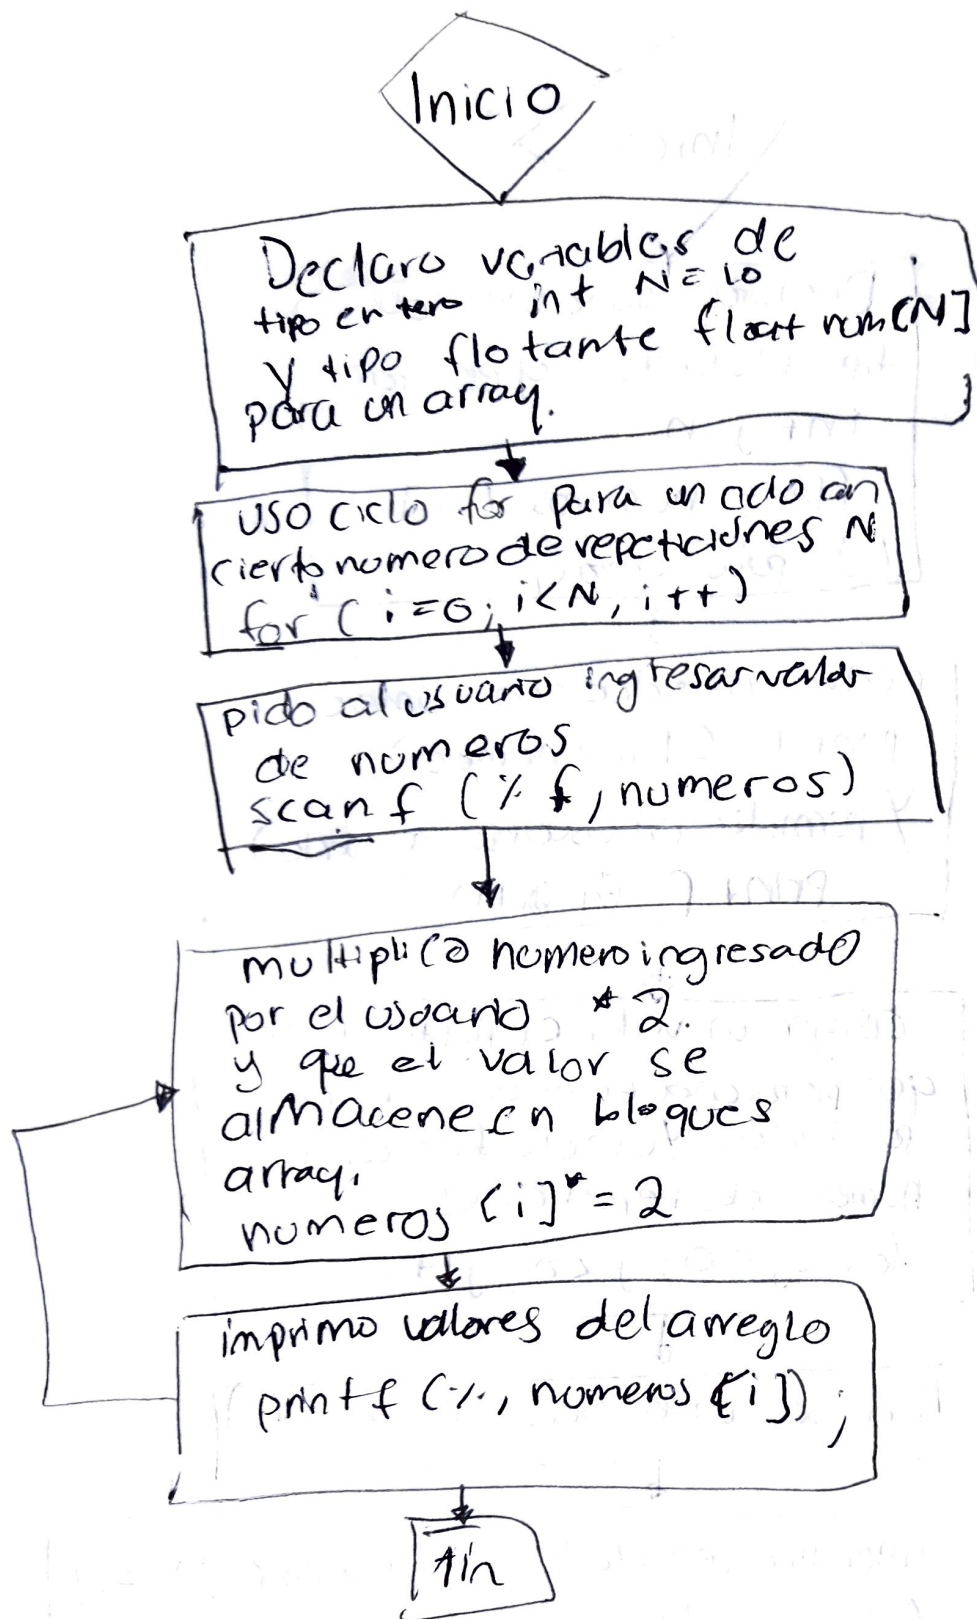 Inicio
Declaro variables de
tipo entero int N = 10
y tipo flotante float num[N]
para un array.
uso ciclo for para un ciclo con
cierto numero de repeticiones N
for ( i = 0; i < N, i++ )
pido al usuario ingresar valor
de numeros
scanf (% f, numeros)
multiplico numero ingresado
por el usuario * 2.
y que el valor se
almacene en bloques
array.
numeros [i] * = 2
imprimo valores del arreglo
printf (%, numeros [i]) ;
fin